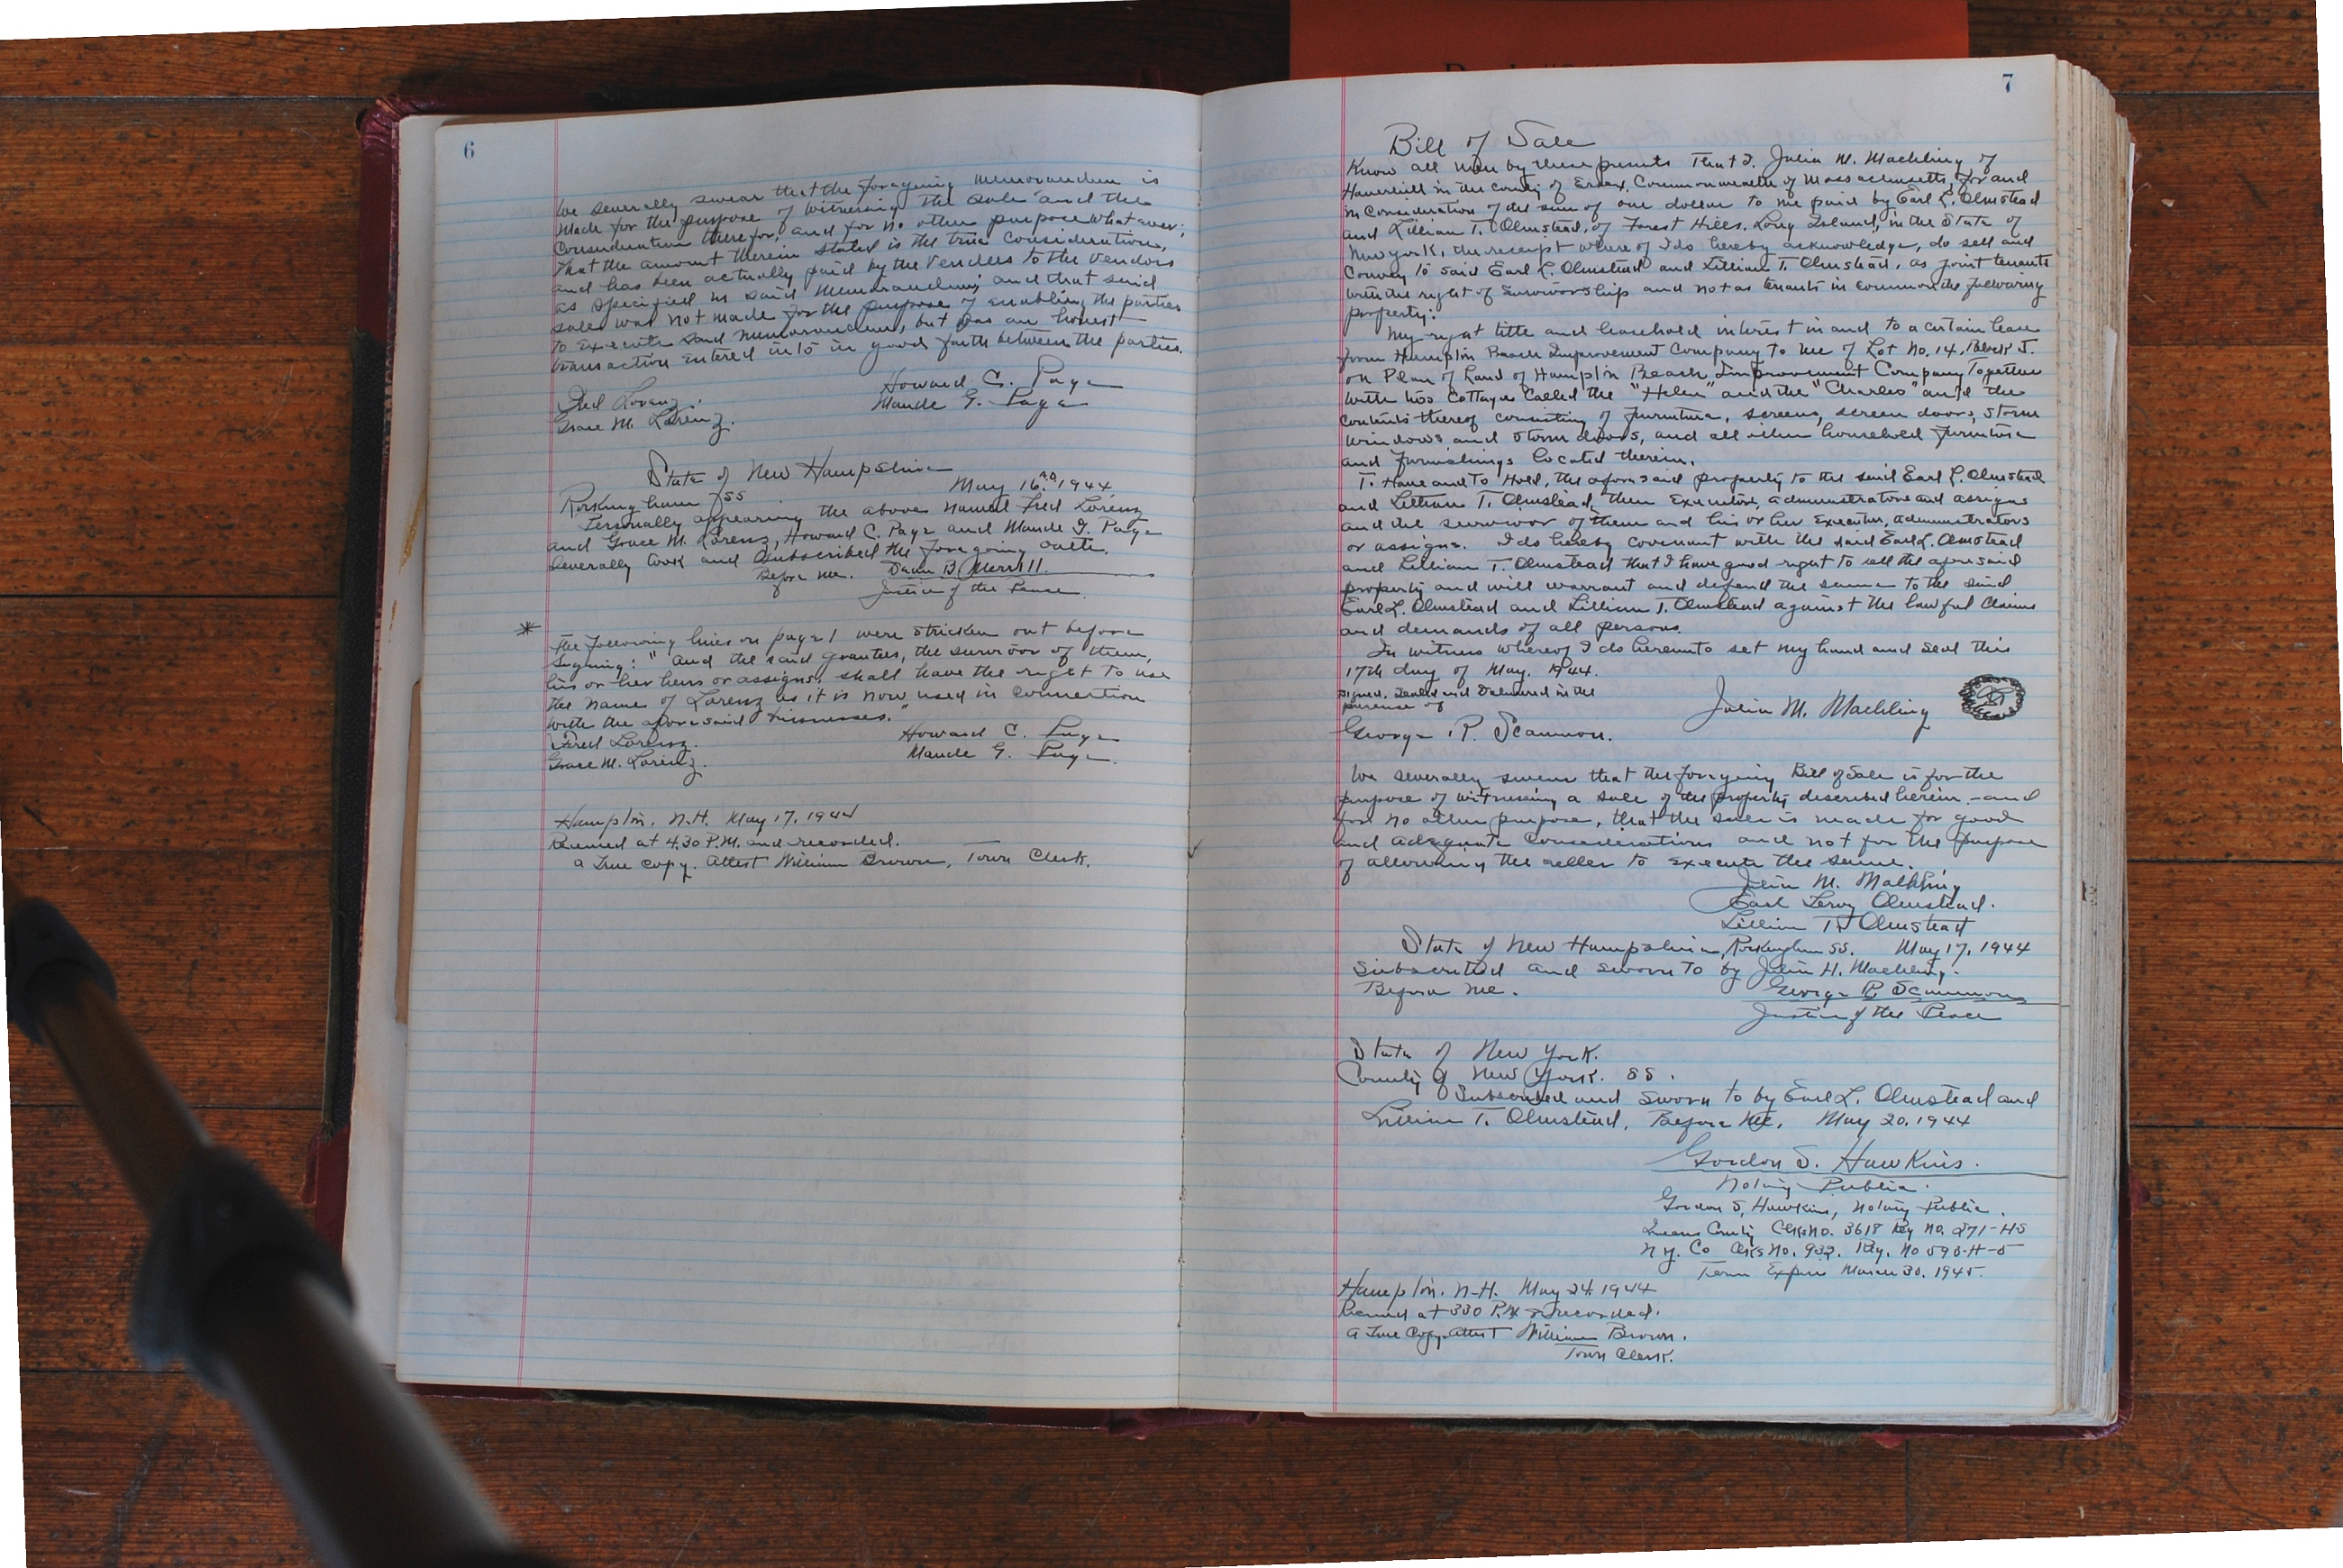 6
We severally swear that the foregoing memorandum is
made for the purpose of witnessing the sale and the
consideration therefor, and for no other purpose whatever;
that the amount therein stated is the true consideration,
and has been actually paid by the vendees to the vendors
as specified in said memorandum; and that said
sale was not made for the purpose of enabling the parties
to execute said memorandum, but was an honest
transaction entered into in good faith between the parties.
Howard C. Page
Fred Lorenz.
Maude G. Page
Grace M. Lorenz.
State of New Hampshire
Rockingham SS
May 16, A.D. 1944
Personally appearing the above named Fred Lorenz
and Grace M. Lorenz, Howard C. Page and Maude G. Page
severally took and subscribed the foregoing oath.
Before me. Dean B. Merrill.
Justice of the Peace.
* The following lines on page 1 were stricken out before
signing: "And the said grantees, the survivor of them,
his or her heirs or assigns, shall have the right to use
the name of Lorenz as it is now used in connection
with the aforesaid businesses."
Fred Lorenz.
Howard C. Page
Grace M. Lorenz.
Maude G. Page.
Hampton, N.H. May 17, 1944
Received at 4.30 P.M. and recorded.
a True copy. Attest William Brown, Town Clerk.
7
Bill of Sale
Know all men by these presents That I, Julia M. Maehling of
Haverhill in the county of Essex, Commonwealth of Massachusetts, for and
in Consideration of the sum of one dollar to me paid by Earl L. Olmstead
and Lillian T. Olmstead, of Forest Hills, Long Island, in the State of
New York, the receipt whereof I do hereby acknowledge, do sell and
Convey to said Earl L. Olmstead and Lillian T. Olmstead, as joint tenants
with the right of survivorship and not as tenants in common the following
property:
My right title and leasehold interest in and to a certain lease
from Hampton Beach Improvement Company to me of Lot No. 14, Block J.
on Plan of Land of Hampton Beach Improvement Company Together
with two Cottages Called the "Helen" and the "Charles" and the
contents thereof consisting of furniture, screens, screen doors, storm
windows and storm doors, and all other household furniture
and furnishings located therein.
To Have and To Hold, the aforesaid property to the said Earl L. Olmstead
and Lillian T. Olmstead, their Executors, administrators and assigns
and the survivor of them and his or her Executors, administrators
or assigns. I do hereby covenant with the said Earl L. Olmstead
and Lillian T. Olmstead that I have good right to sell the aforesaid
property and will warrant and defend the same to the said
Earl L. Olmstead and Lillian T. Olmstead against the lawful claims
and demands of all persons.
In witness whereof I do hereunto set my hand and seal this
17th day of May, 1944.
Signed, Sealed and Delivered in the
presence of
Julia M. Maehling
George R. Scammon.
We severally swear that the foregoing Bill of Sale is for the
purpose of witnessing a sale of the property described herein and
for no other purpose, that the sale is made for good
and adequate considerations and not for the purpose
of allowing the seller to execute the same.
Julia M. Maehling
Earl Leroy Olmstead.
Lillian T. Olmstead
State of New Hampshire, Rockingham SS. May 17, 1944
Subscribed and sworn to by Julia H. Maehling.
Before me.
George R. Scammon
Justice of the Peace
State of New York.
County of New York. SS.
Subscribed and sworn to by Earl L. Olmstead and
Lillian T. Olmstead, Before Me, May 20, 1944
Gordon S. Hawkins.
Notary Public.
Gordon S. Hawkins, Notary Public.
Queens County Clks No. 3618 Reg No. 271-H5
N.Y. Co Clks No. 932. Reg. No 593-H-5
Term Expires March 30, 1945.
Hampton, N.H. May 24, 1944
Received at 330 P.M & recorded.
a True Copy. Attest William Brown.
Town Clerk.